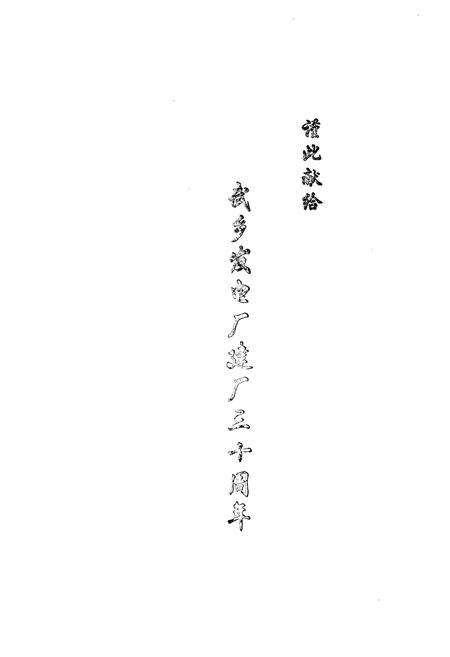 谨此献给
武乡发电厂建厂三十周年